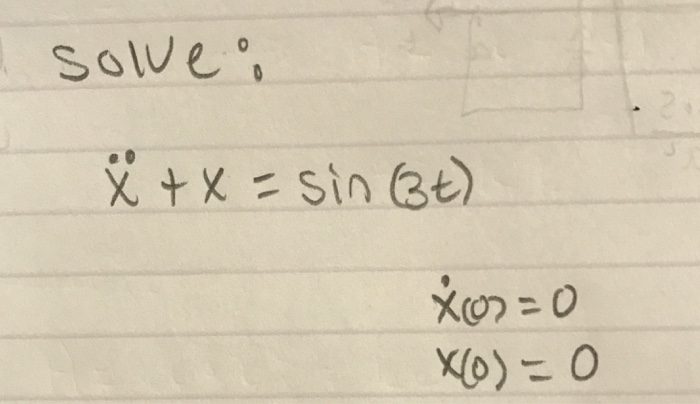 solve:
ẍ + x = sin(3t)
ẋ(0) = 0
x(0) = 0